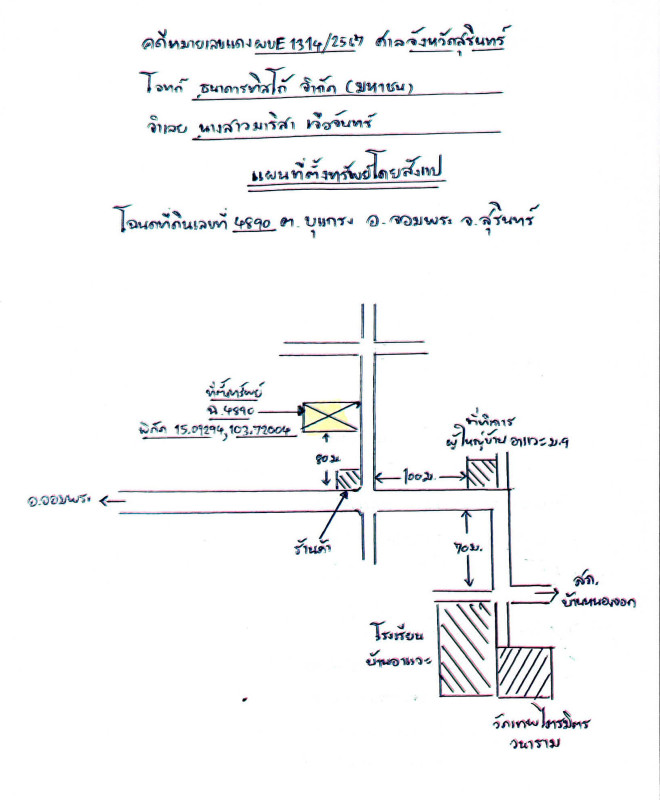 คดีหมายเลขแดงผบE 1314/2567 ศาลจังหวัดสุรินทร์
โจทก์ ธนาคารทิสโก้ จำกัด (มหาชน)
จำเลย นางสาวมาริสา เจือจันทร์
แผนที่ตั้งทรัพย์โดยสังเขป
โฉนดที่ดินเลขที่ 4890 ต. บุแกรง อ. จอมพระ จ. สุรินทร์
ที่ตั้งทรัพย์
ฉ. 4890
พิกัด 15.09294, 103.72004
ที่ทำการ
ผู้ใหญ่บ้าน อาแวะ ม.9
80 ม.
100 ม.
อ.จอมพระ
ร้านค้า
70 ม.
สภ.
บ้านหนองจอก
โรงเรียน
บ้านอาแวะ
วัดเทพไตรมิตร
วนาราม